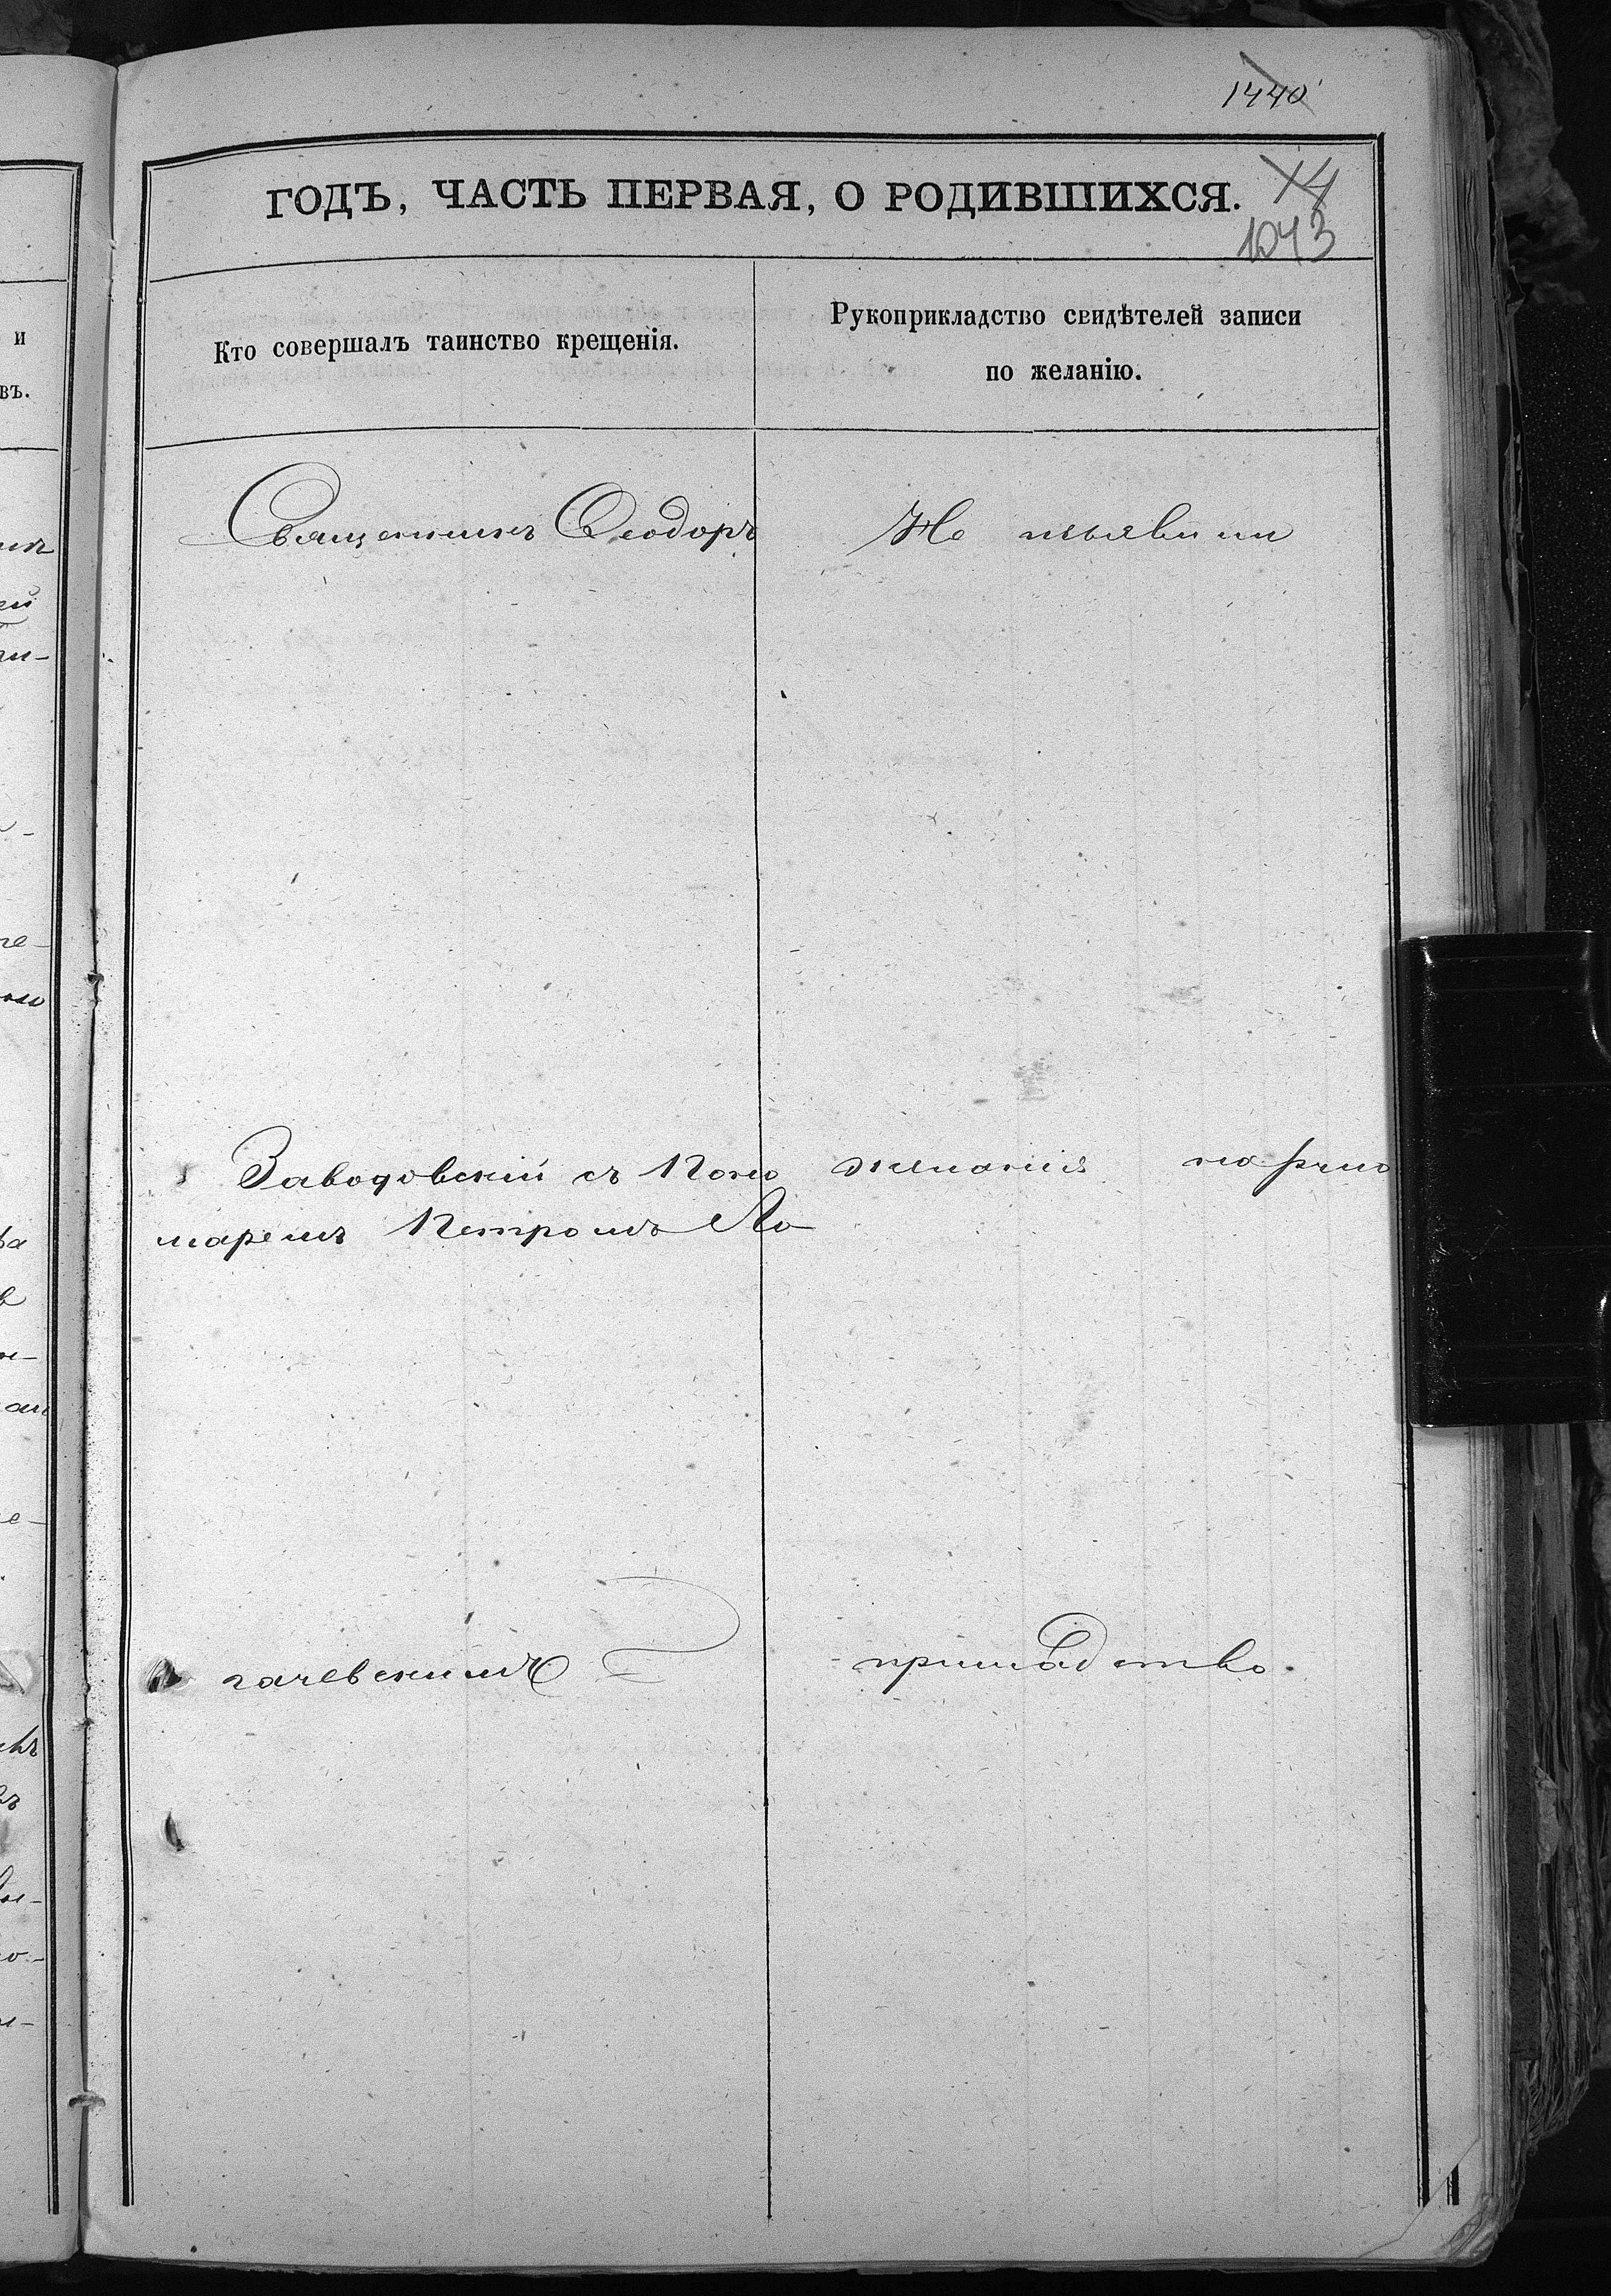 1440
ГОДЪ, ЧАСТЬ ПЕРВАЯ, О РОДИВШИХСЯ.
1043
Кто совершалъ таинство крещенія.
Рукоприкладство свидѣтелей записи
по желанію.
Священникъ Ѳеодоръ
Не изъявили
Заводовскій съ Поно
маремъ Петромъ Ло
гачевскимъ
желанія на руко
прикладство.